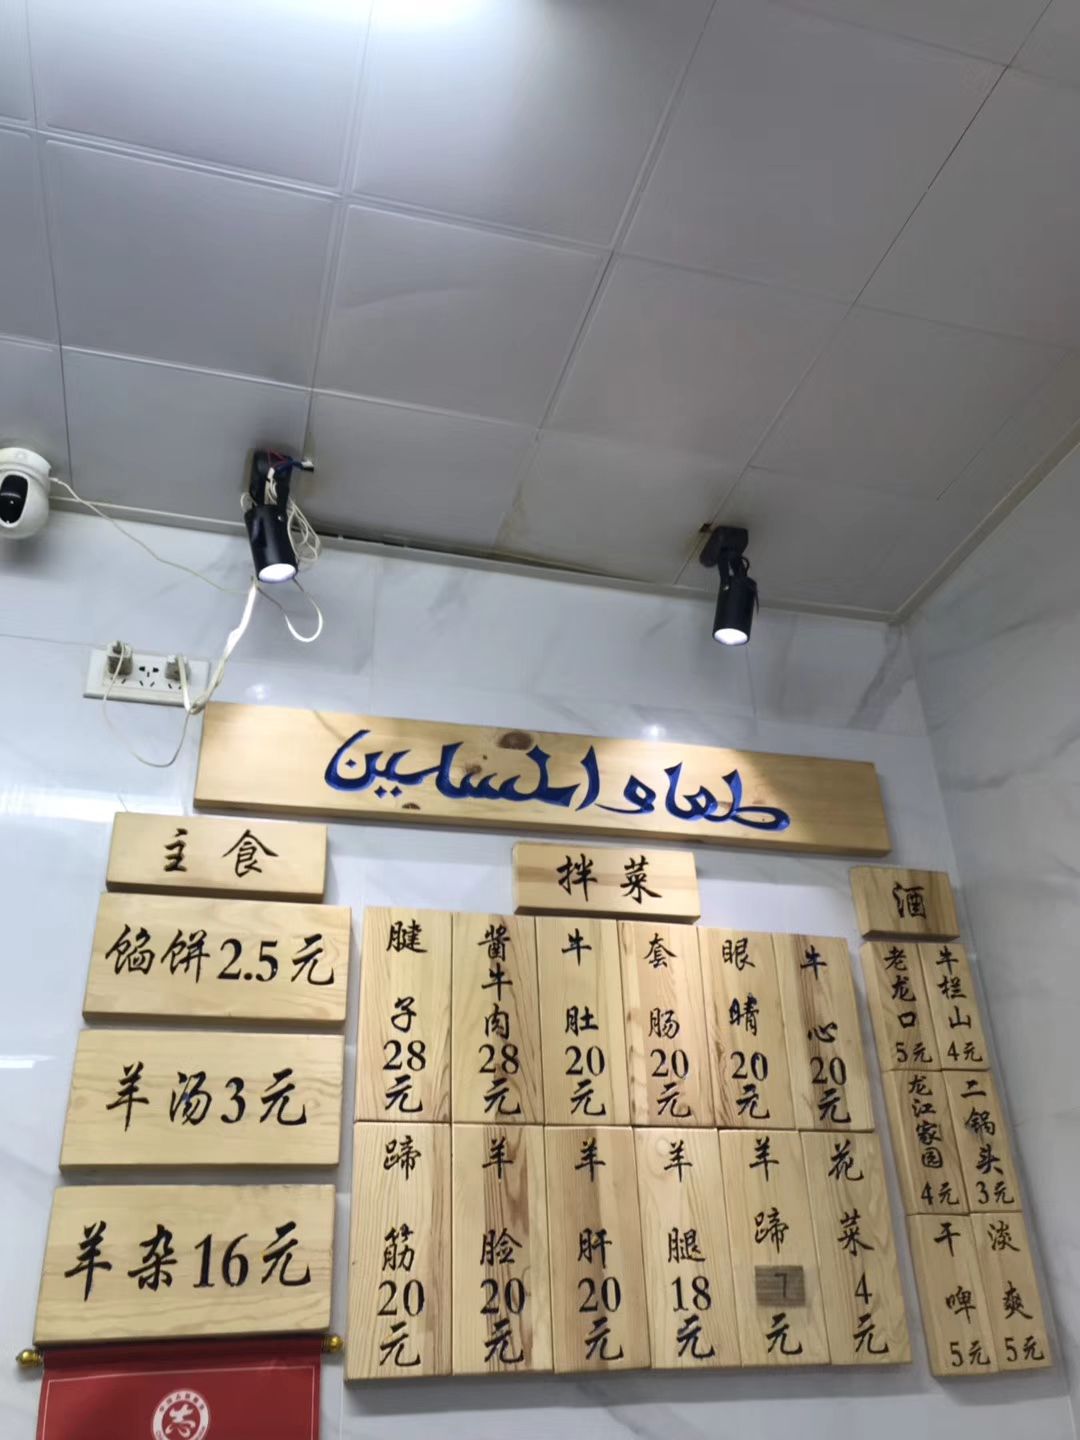 طعام المسلمين
主食
馅饼2.5元
羊汤3元
羊杂16元
拌菜
腱子28元
酱牛肉28元
牛肚20元
套肠20元
眼睛20元
牛心20元
蹄筋20元
羊脸20元
羊肝20元
羊腿18元
羊蹄7元
花菜4元
酒
老龙口5元
牛栏山4元
龙江家园4元
二锅头3元
干啤5元
淡爽5元